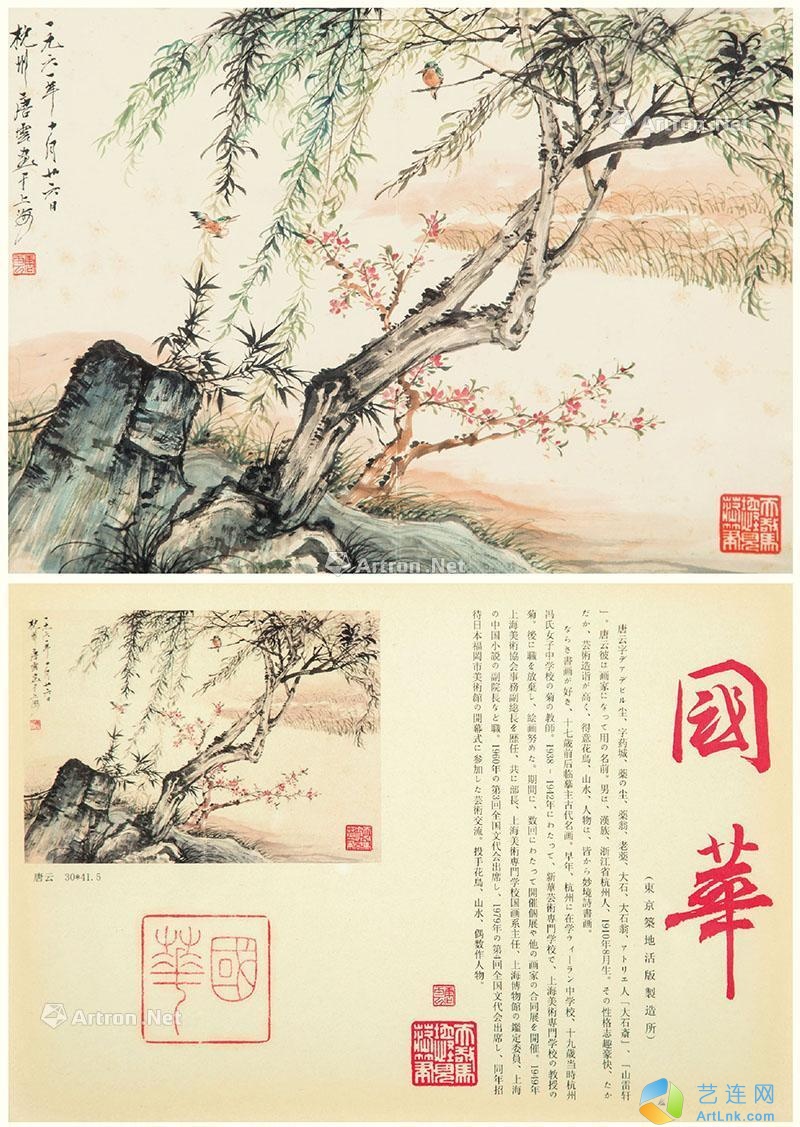 一九六一年十月廿六日
杭州唐雲畫于上海
Artron.Net
Artron.Net
國華
(東京築地活版製造所)
唐云字デァデビル尘、字药城、薬の尘、薬翁、老薬、大石、大石翁、アトリエ人「大石斎」、「山雷轩
」。唐云彼は画家になって用の名前。男は、漢族、浙江省杭州人、1910年8月生。その性格志趣豪快、たか
だか、芸術造诣が高く、得意花鳥、山水、人物は、皆から妙境詩書画。
ならき書画が好き、十七歳前后临摹主古代名画。早年、杭州に在学ウィーラン中学校、十九歳当時杭州
冯氏女子中学校の菊の教師。1938－1942年にわたって、新華芸術専門学校で、上海美術専門学校の教授の
菊。後に職を放棄し、絵画努めた。期間に、数回にわたって開催個展や他の画家の合同展を開催。1949年
上海美術協会事務副総長を歴任、共に部長、上海美術専門学校国画系主任、上海博物館の鑑定委員、上海
の中国小説の副院長など職。1960年の第3回全国文代会出席し、1979年の第4回全国文代会出席し、同年招
待日本福岡市美術館の開幕式に参加した芸術交流。投手花鳥、山水、偶数作人物。
一九六一年十月廿六日
杭州唐雲畫于上海
唐云 30*41.5
國華
Artron.Net
艺连网
ArtLnk.com